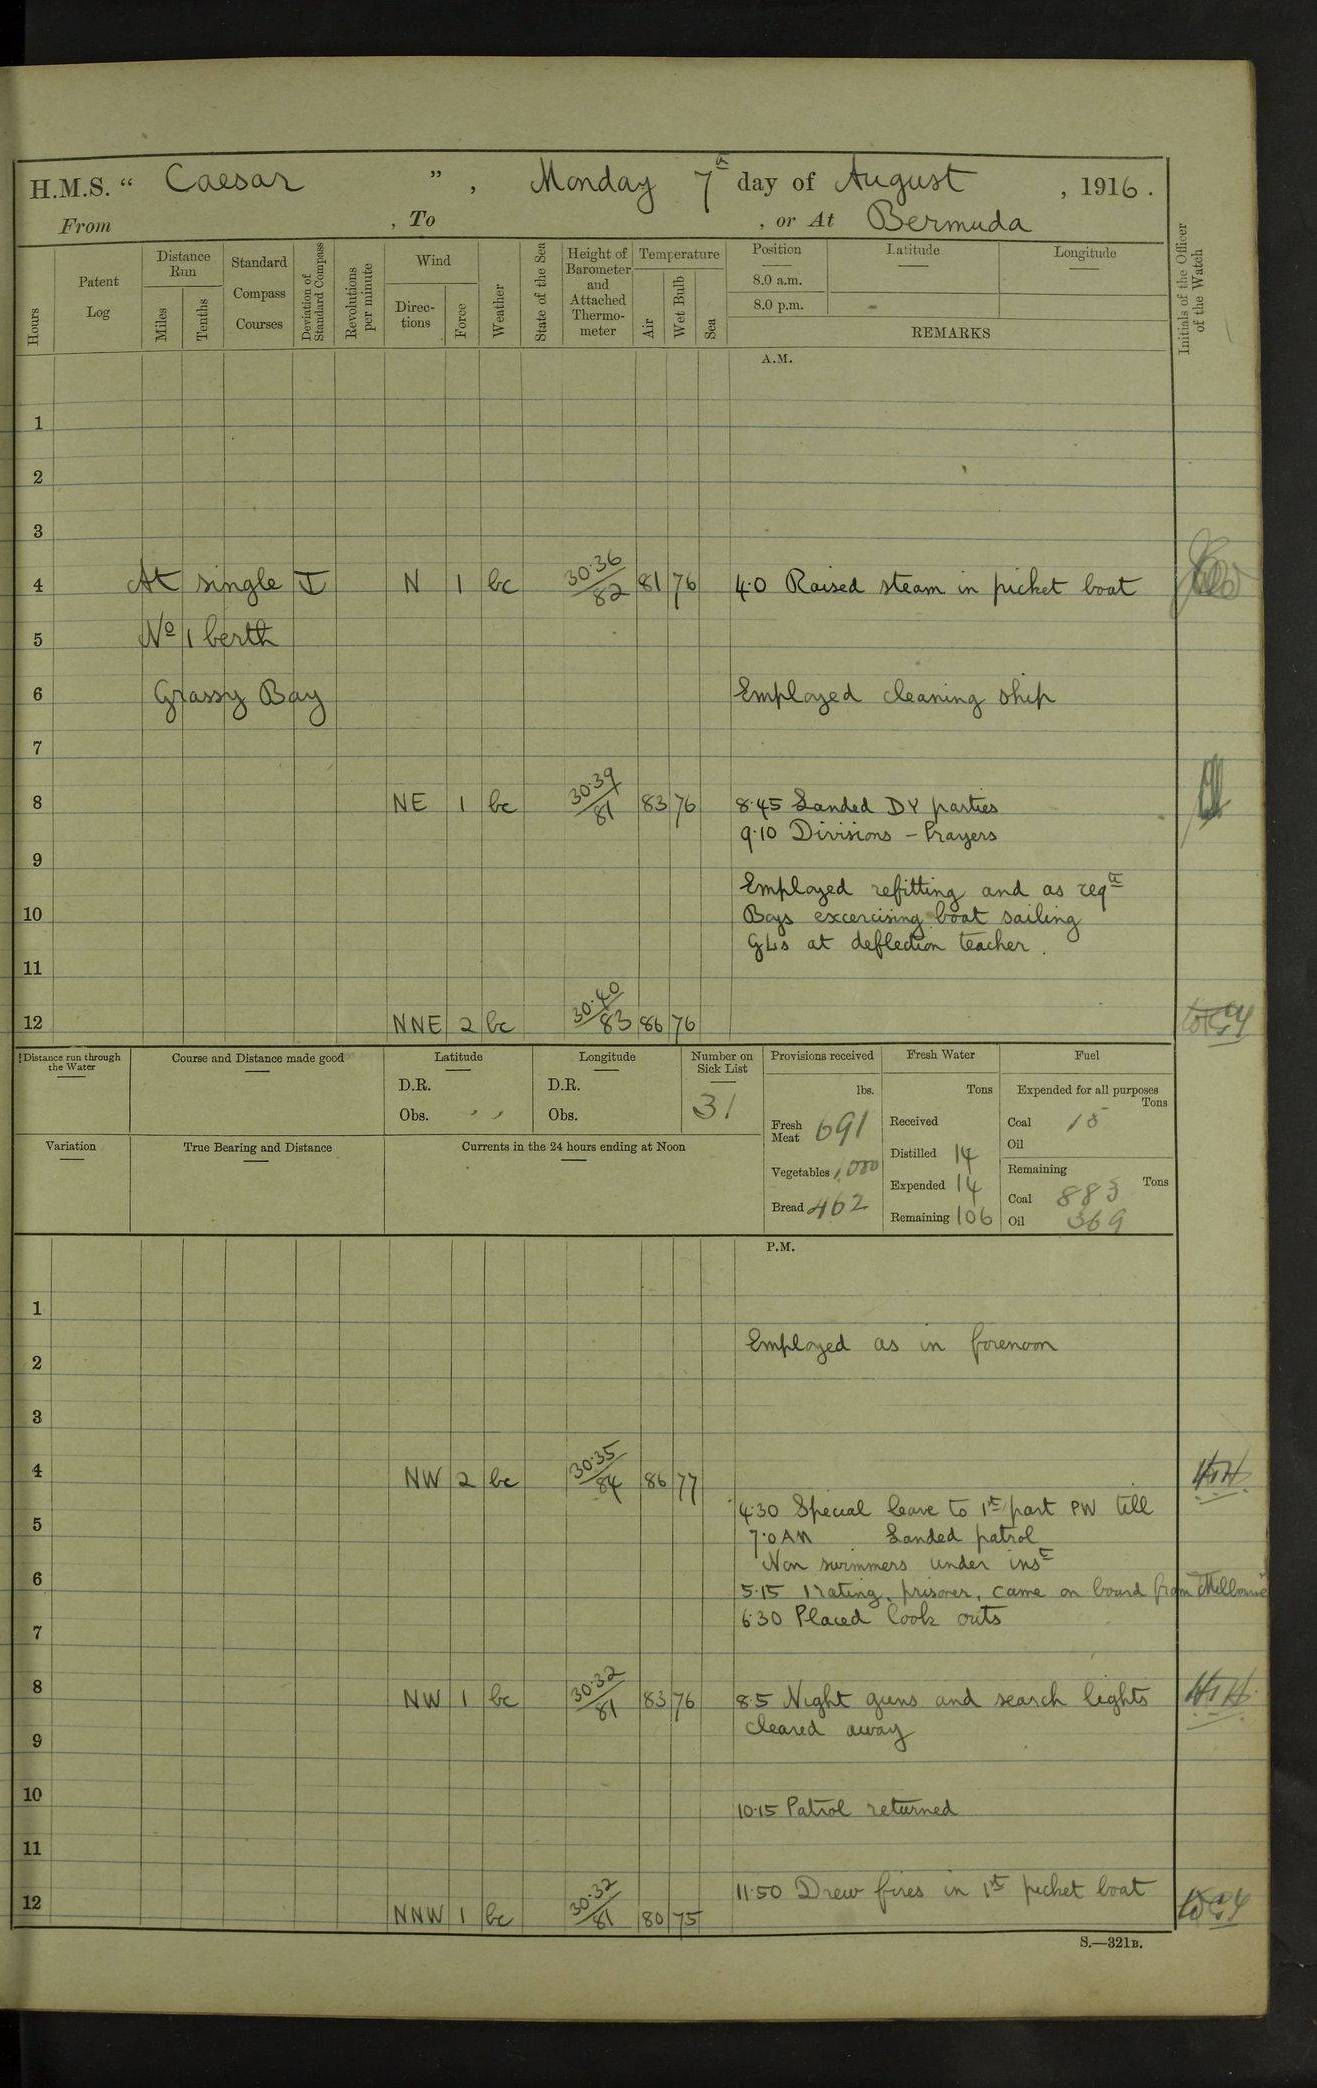 H.M.S. “ Caesar ” , Monday 7th day of August , 1916.
From , To , or At Bermuda
Hours
Patent Log
Distance Run
Miles
Tenths
Standard Compass Courses
Deviation of Standard Compass
Revolutions per minute
Wind
Directions
Force
Weather
State of the Sea
Height of Barometer and Attached Thermometer
Temperature
Air
Wet Bulb
Sea
Position
Latitude
Longitude
8.0 a.m.
8.0 p.m.
REMARKS
Initials of the Officer of the Watch
A.M.
1
2
3
4 At single N 1 bc 30.36/82 81 76 4.0 Raised steam in picket boat
5 No 1 berth
6 Grassy Bay Employed cleaning ship
7
8 NE 1 bc 30.39/81 83 76 8.45 Landed DY parties
9.10 Divisions - Prayers
9
Employed refitting and as reqte
10 Boys excercising boat sailing
GLs at deflection teacher.
11
12 NNE 2 bc 30.40/83 86 76
Distance run through the Water
Course and Distance made good
Latitude
D.R.
Obs.
Longitude
D.R.
Obs.
Number on Sick List
31
Provisions received
lbs.
Fresh Meat 691
Vegetables 1,000
Bread 462
Fresh Water
Tons
Received
Distilled 14
Expended 14
Remaining 106
Fuel
Expended for all purposes
Tons
Coal 15
Oil
Remaining
Tons
Coal 883
Oil 369
Variation
True Bearing and Distance
Currents in the 24 hours ending at Noon
P.M.
1
Employed as in forenoon
2
3
4 NW 2 bc 30.35/84 86 77
4.30 Special leave to 1st part PW till
5 7.0 AM Landed patrol
Non swimmers under inst
6 5.15 1 rating, prisoner, came on board from Melbourne
6.30 Placed look outs
7
8 NW 1 bc 30.32/81 83 76 8.5 Night guns and search lights
cleared away
9
10 10.15 Patrol returned
11
11.50 Drew fires in 1st picket boat
12 NNW 1 bc 30.32/81 80 75
S.—321B.